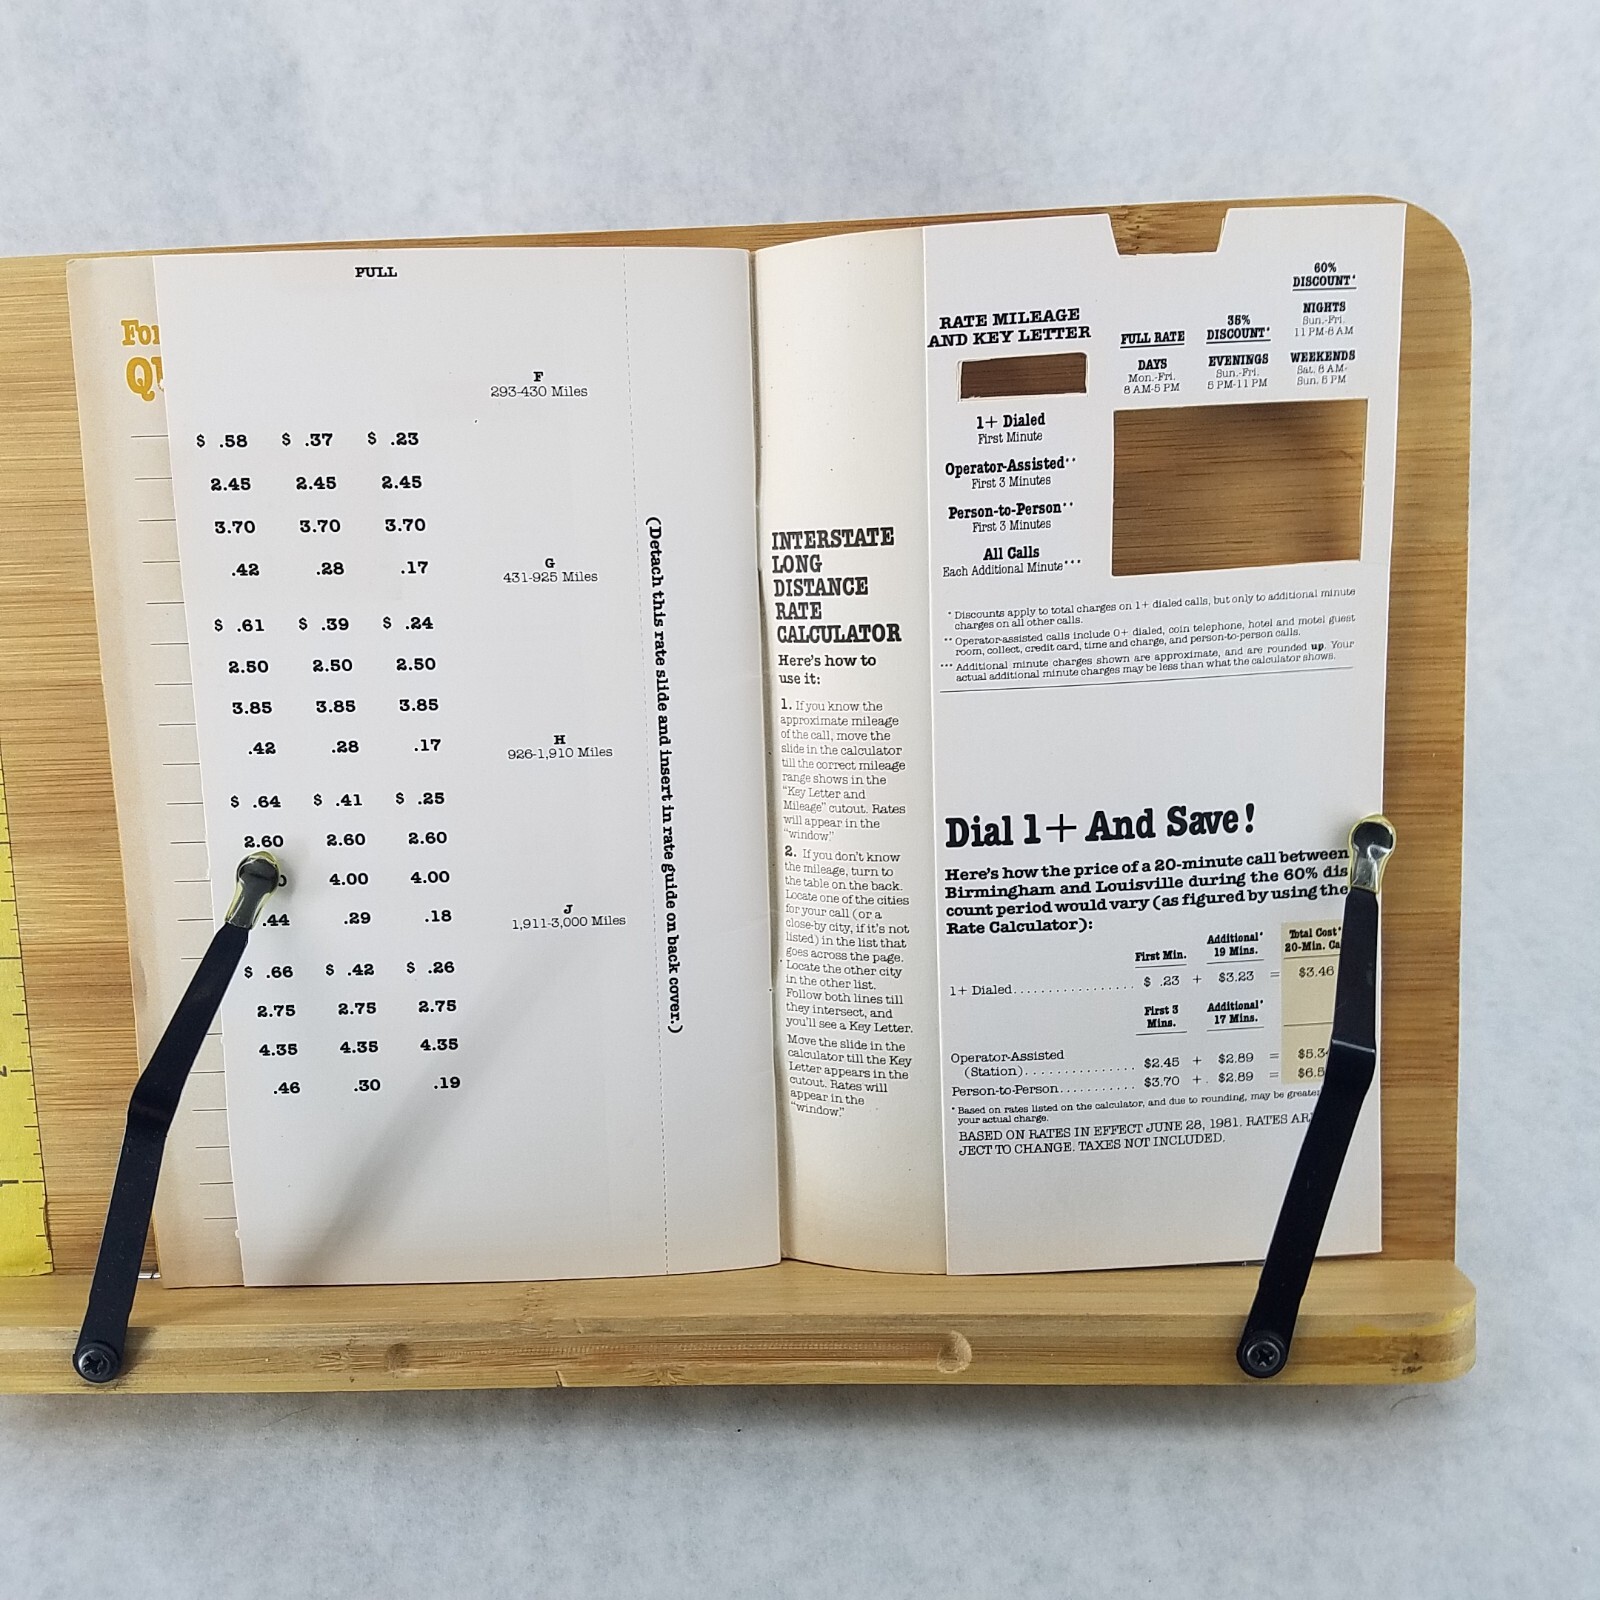 PULL
F
293-430 Miles
$ .58 $ .37 $ .23
2.45 2.45 2.45
3.70 3.70 3.70
.42 .28 .17
G
431-925 Miles
$ .61 $ .39 $ .24
2.50 2.50 2.50
3.85 3.85 3.85
.42 .28 .17
H
926-1,910 Miles
$ .64 $ .41 $ .25
2.60 2.60 2.60
4.00 4.00
.44 .29 .18
J
1,911-3,000 Miles
$ .66 $ .42 $ .26
2.75 2.75 2.75
4.35 4.35 4.35
.46 .30 .19
(Detach this rate slide and insert in rate guide on back cover.)
INTERSTATE
LONG
DISTANCE
RATE
CALCULATOR
Here's how to
use it:
1. If you know the
approximate mileage
of the call, move the
slide in the calculator
till the correct mileage
range shows in the
"Key Letter and
Mileage" cutout. Rates
will appear in the
"window."
2. If you don't know
the mileage, turn to
the table on the back.
Locate one of the cities
for your call (or a
close-by city, if it's not
listed) in the list that
goes across the page.
Locate the other city
in the other list.
Follow both lines till
they intersect, and
you'll see a Key Letter.
Move the slide in the
calculator till the Key
Letter appears in the
cutout. Rates will
appear in the
"window."
RATE MILEAGE
AND KEY LETTER
FULL RATE
DAYS
Mon.-Fri.
8 AM-5 PM
35%
DISCOUNT*
EVENINGS
Sun.-Fri.
5 PM-11 PM
60%
DISCOUNT*
NIGHTS
Sun.-Fri.
11 PM-8 AM
WEEKENDS
Sat. 8 AM-
Sun. 5 PM
1+ Dialed
First Minute
Operator-Assisted**
First 3 Minutes
Person-to-Person**
First 3 Minutes
All Calls
Each Additional Minute***
* Discounts apply to total charges on 1+ dialed calls, but only to additional minute
charges on all other calls.
** Operator-assisted calls include 0+ dialed, coin telephone, hotel and motel guest
room, collect, credit card, time and charge, and person-to-person calls.
*** Additional minute charges shown are approximate, and are rounded up. Your
actual additional minute charges may be less than what the calculator shows.
Dial 1+ And Save!
Here's how the price of a 20-minute call between
Birmingham and Louisville during the 60% dis
count period would vary (as figured by using the
Rate Calculator):
First Min. Additional* 19 Mins. Total Cost* 20-Min.
1+ Dialed................. $ .23 + $3.23 = $3.46
First 3 Mins. Additional* 17 Mins.
Operator-Assisted
(Station)................ $2.45 + $2.89 =
Person-to-Person........... $3.70 + $2.89 =
* Based on rates listed on the calculator, and due to rounding, may be greater
your actual charge.
BASED ON RATES IN EFFECT JUNE 28, 1981. RATES
JECT TO CHANGE. TAXES NOT INCLUDED.